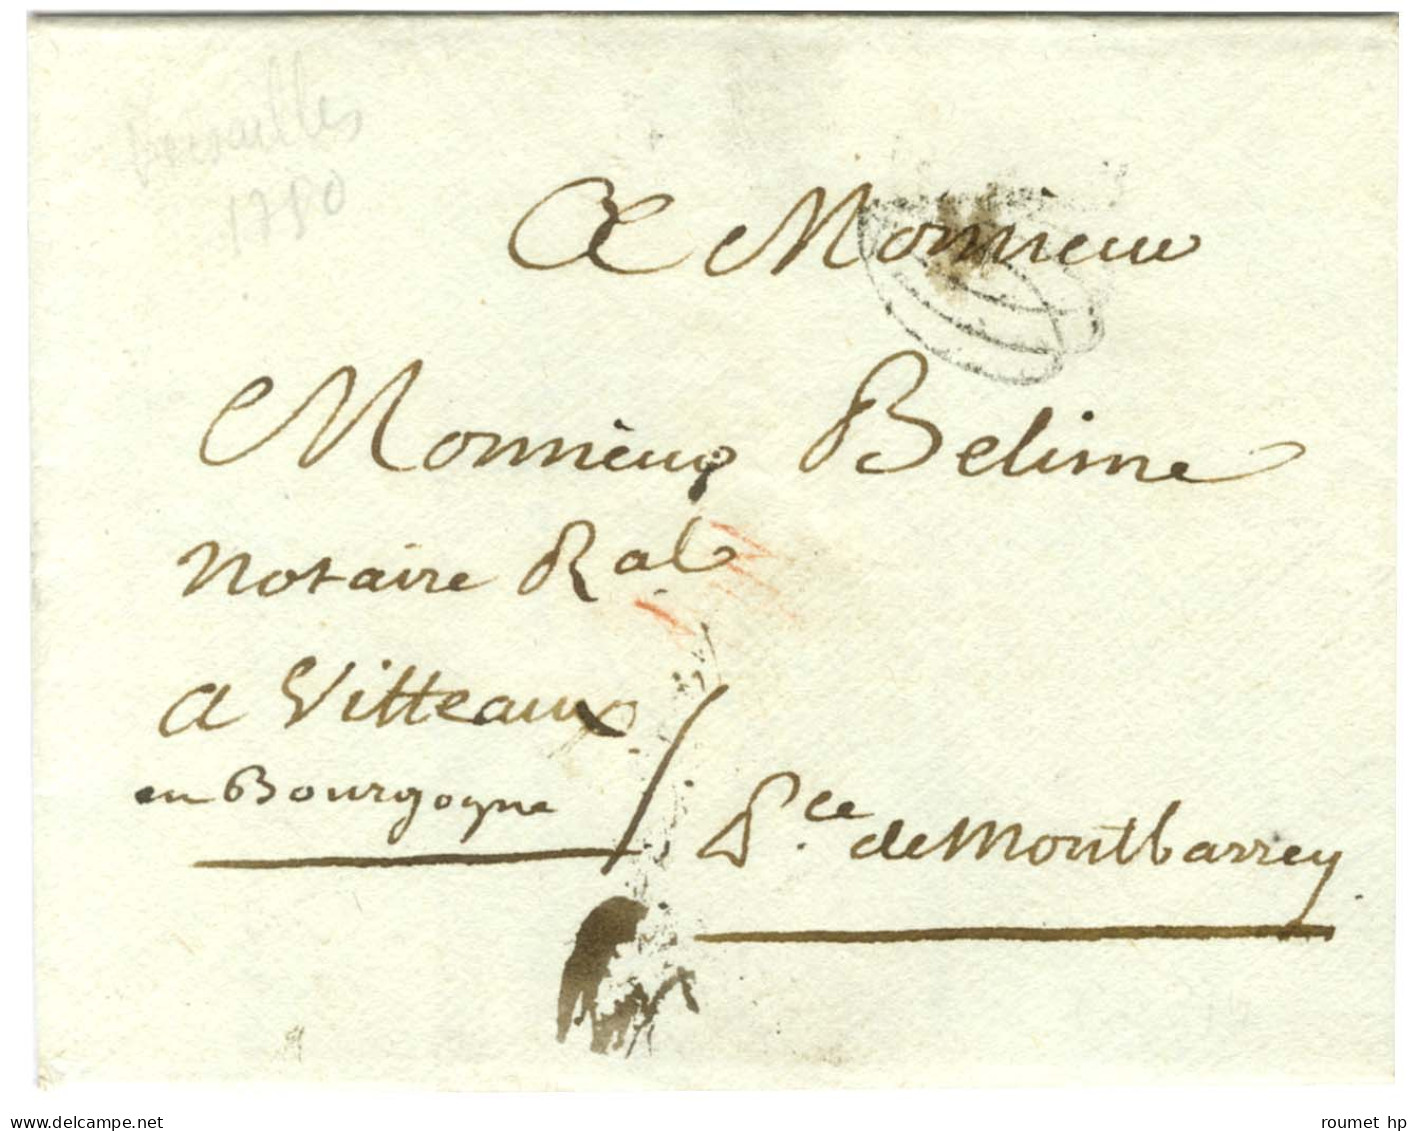 Versailles
1780
A Monsieur
Monsieur Belime
notaire Ral
a Vitteaux
en Bourgogne
Pce de Montbarrey
www.delcampe.net
roumet hp